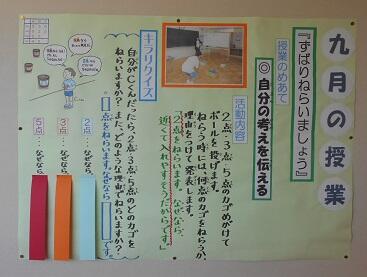 九月の授業
『ずばりねらいましょう』
授業のめあて
◎自分の考えを伝える
活動内容
2点・3点・5点のカゴめがけて
ボールを投げます。
ねらう時には、何点のカゴをねらうか、
理由をつけて発表します。
「2点をねらいます。なぜなら、
近くて入れやすそうだからです。」
キラリクイズ
自分がCくんだったら、2点・3点・5点のどのカゴを
ねらいますか?また、どのような理由でねらいますか?
点をねらいます。なぜなら
です。
2点…なぜなら、
3点…なぜなら、
5点…なぜなら、